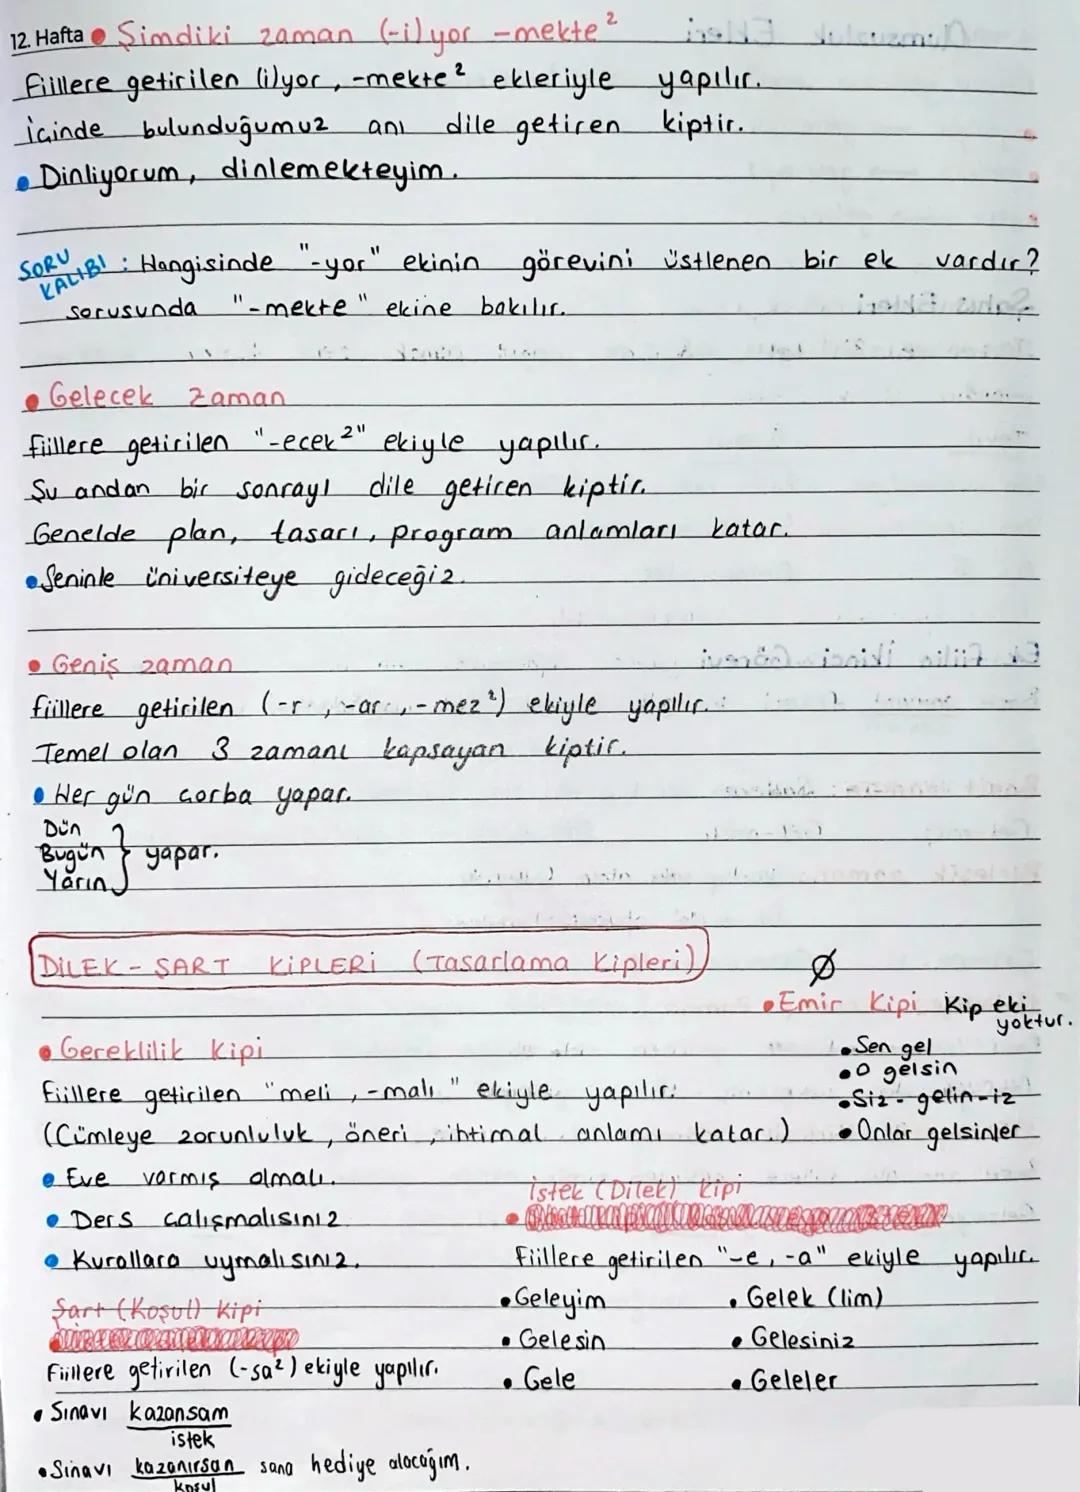 12. Hafta • Şimdiki zaman (-i)yor -mekte²
Fiillere getirilen (i)yor, -mekte² ekleriyle yapılır.
İçinde bulunduğumuz anı dile getiren kiptir.
• Dinliyorum, dinlemekteyim.
SORU KALIBI : Hangisinde "-yor" ekinin görevini üstlenen bir ek vardır?
sorusunda "-mekte" ekine bakılır.
• Gelecek zaman
Fiillere getirilen "-ecek²" ekiyle yapılır.
Şu andan bir sonrayı dile getiren kiptir.
Genelde plan, tasarı, program anlamları katar.
• Seninle üniversiteye gideceğiz.
• Geniş zaman
fiillere getirilen (-r, -ar, -mez²) ekiyle yapılır.
Temel olan 3 zamanı kapsayan kiptir.
• Her gün çorba yapar.
Dün
Bugün } yapar.
Yarın
DİLEK-ŞART KİPLERİ (Tasarlama Kipleri)
Ø
• Emir Kipi Kip eki yoktur.
• Sen gel
• O gelsin
• Siz - gelin-iz
• Onlar gelsinler
• Gereklilik Kipi
Fiillere getirilen "meli, -malı" ekiyle yapılır.
(Cümleye zorunluluk, öneri, ihtimal anlamı katar.)
• Eve varmış olmalı.
• Ders çalışmalısınız
• Kurallara uymalısınız.
Şart (Koşul) Kipi
Fiillere getirilen (-sa²) ekiyle yapılır.
• Sınavı kazansam
istek
• Sınavı kazanırsan sana hediye alacağım.
koşul
İstek (Dilek) Kipi
Fiillere getirilen "-e, -a" ekiyle yapılır.
• Geleyim
• Gelesin
• Gele
• Gelek (lim)
• Gelesiniz
• Geleler